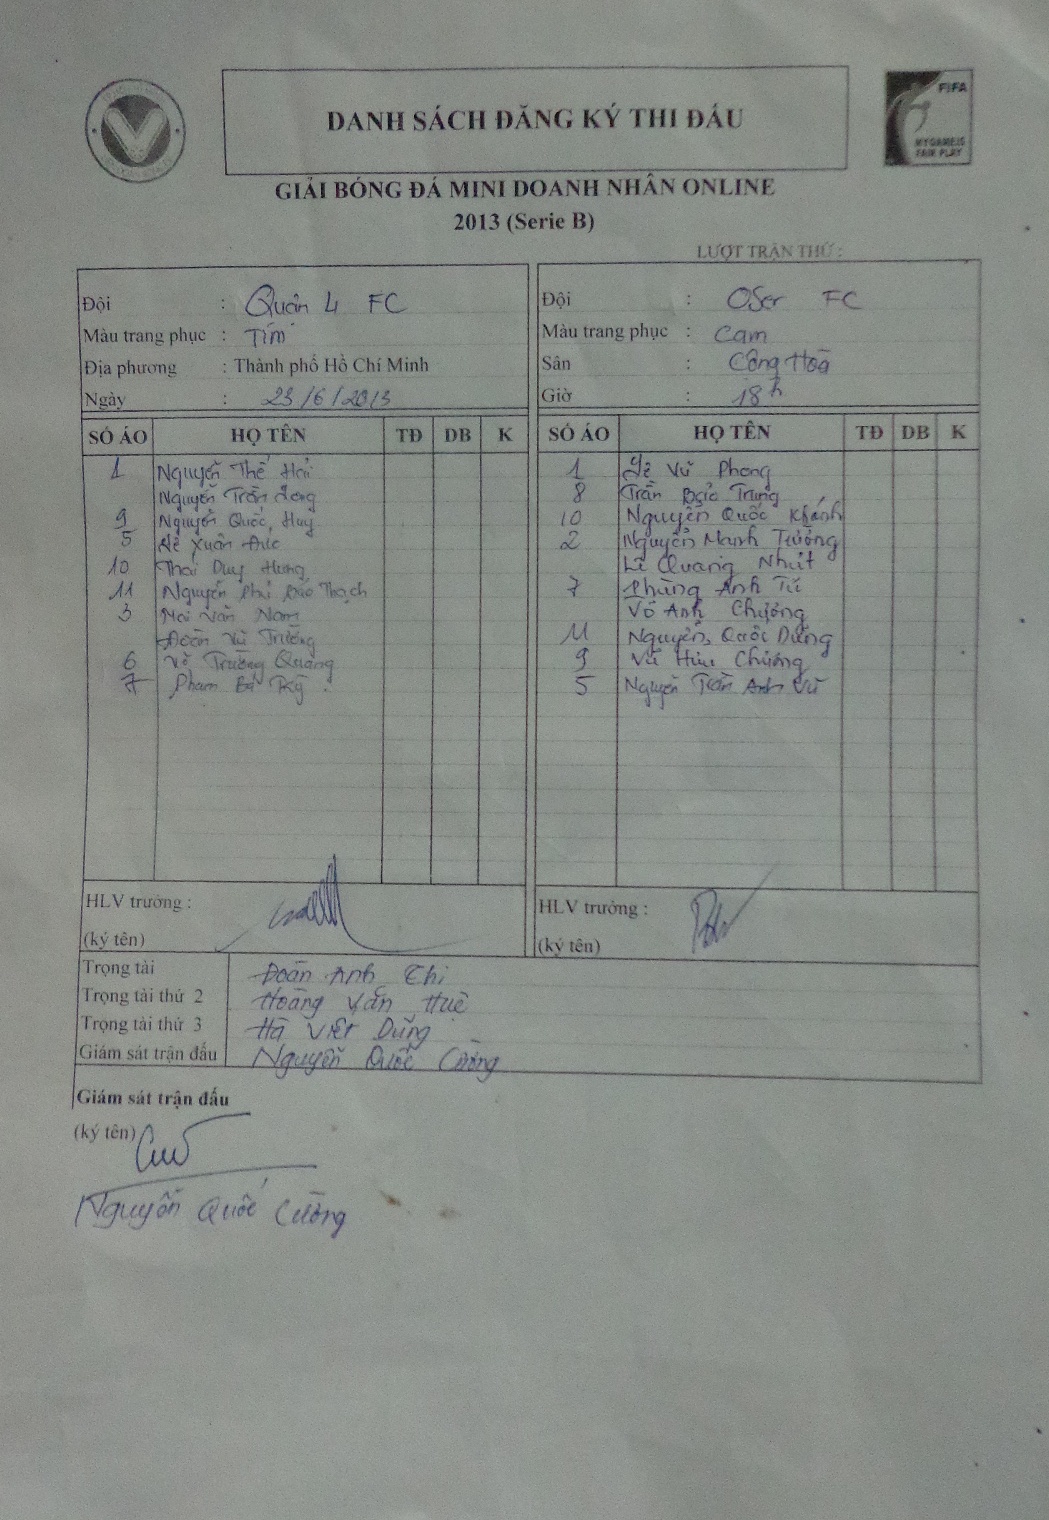 DANH SÁCH ĐĂNG KÝ THI ĐẤU
FIFA
MY GAME IS
FAIR PLAY
GIẢI BÓNG ĐÁ MINI DOANH NHÂN ONLINE
2013 (Serie B)
LƯỢT TRẬN THỨ :
Đội : Quận 4 FC
Màu trang phục : Tím
Địa phương : Thành phố Hồ Chí Minh
Ngày : 23/6/2013
Đội : OSer FC
Màu trang phục : Cam
Sân : Cộng Hoà
Giờ : 18h
SỐ ÁO HỌ TÊN TĐ DB K
1 Nguyễn Thế Hải
Nguyễn Trần Long
9 Nguyễn Quốc Huy
5 Lê Xuân Đức
10 Thái Duy Hưng
11 Nguyễn Phi Bảo Thạch
3 Mai Văn Nam
Đoàn Vũ Trường
6 Võ Trường Quang
7 Phạm Bá Kỳ
SỐ ÁO HỌ TÊN TĐ DB K
1 Lê Vũ Phong
8 Trần Bảo Trung
10 Nguyễn Quốc Khánh
2 Nguyễn Mạnh Tường
Lê Quang Nhựt
7 Phùng Anh Tú
Võ Anh Chương
11 Nguyễn Quốc Dũng
9 Vũ Hữu Chương
5 Nguyễn Trần Anh Vũ
HLV trưởng :
(ký tên)
HLV trưởng :
(ký tên)
Trọng tài Đoàn Anh Thi
Trọng tài thứ 2 Hoàng Văn Huệ
Trọng tài thứ 3 Hà Việt Dũng
Giám sát trận đấu Nguyễn Quốc Cường
Giám sát trận đấu
(ký tên)
Nguyễn Quốc Cường